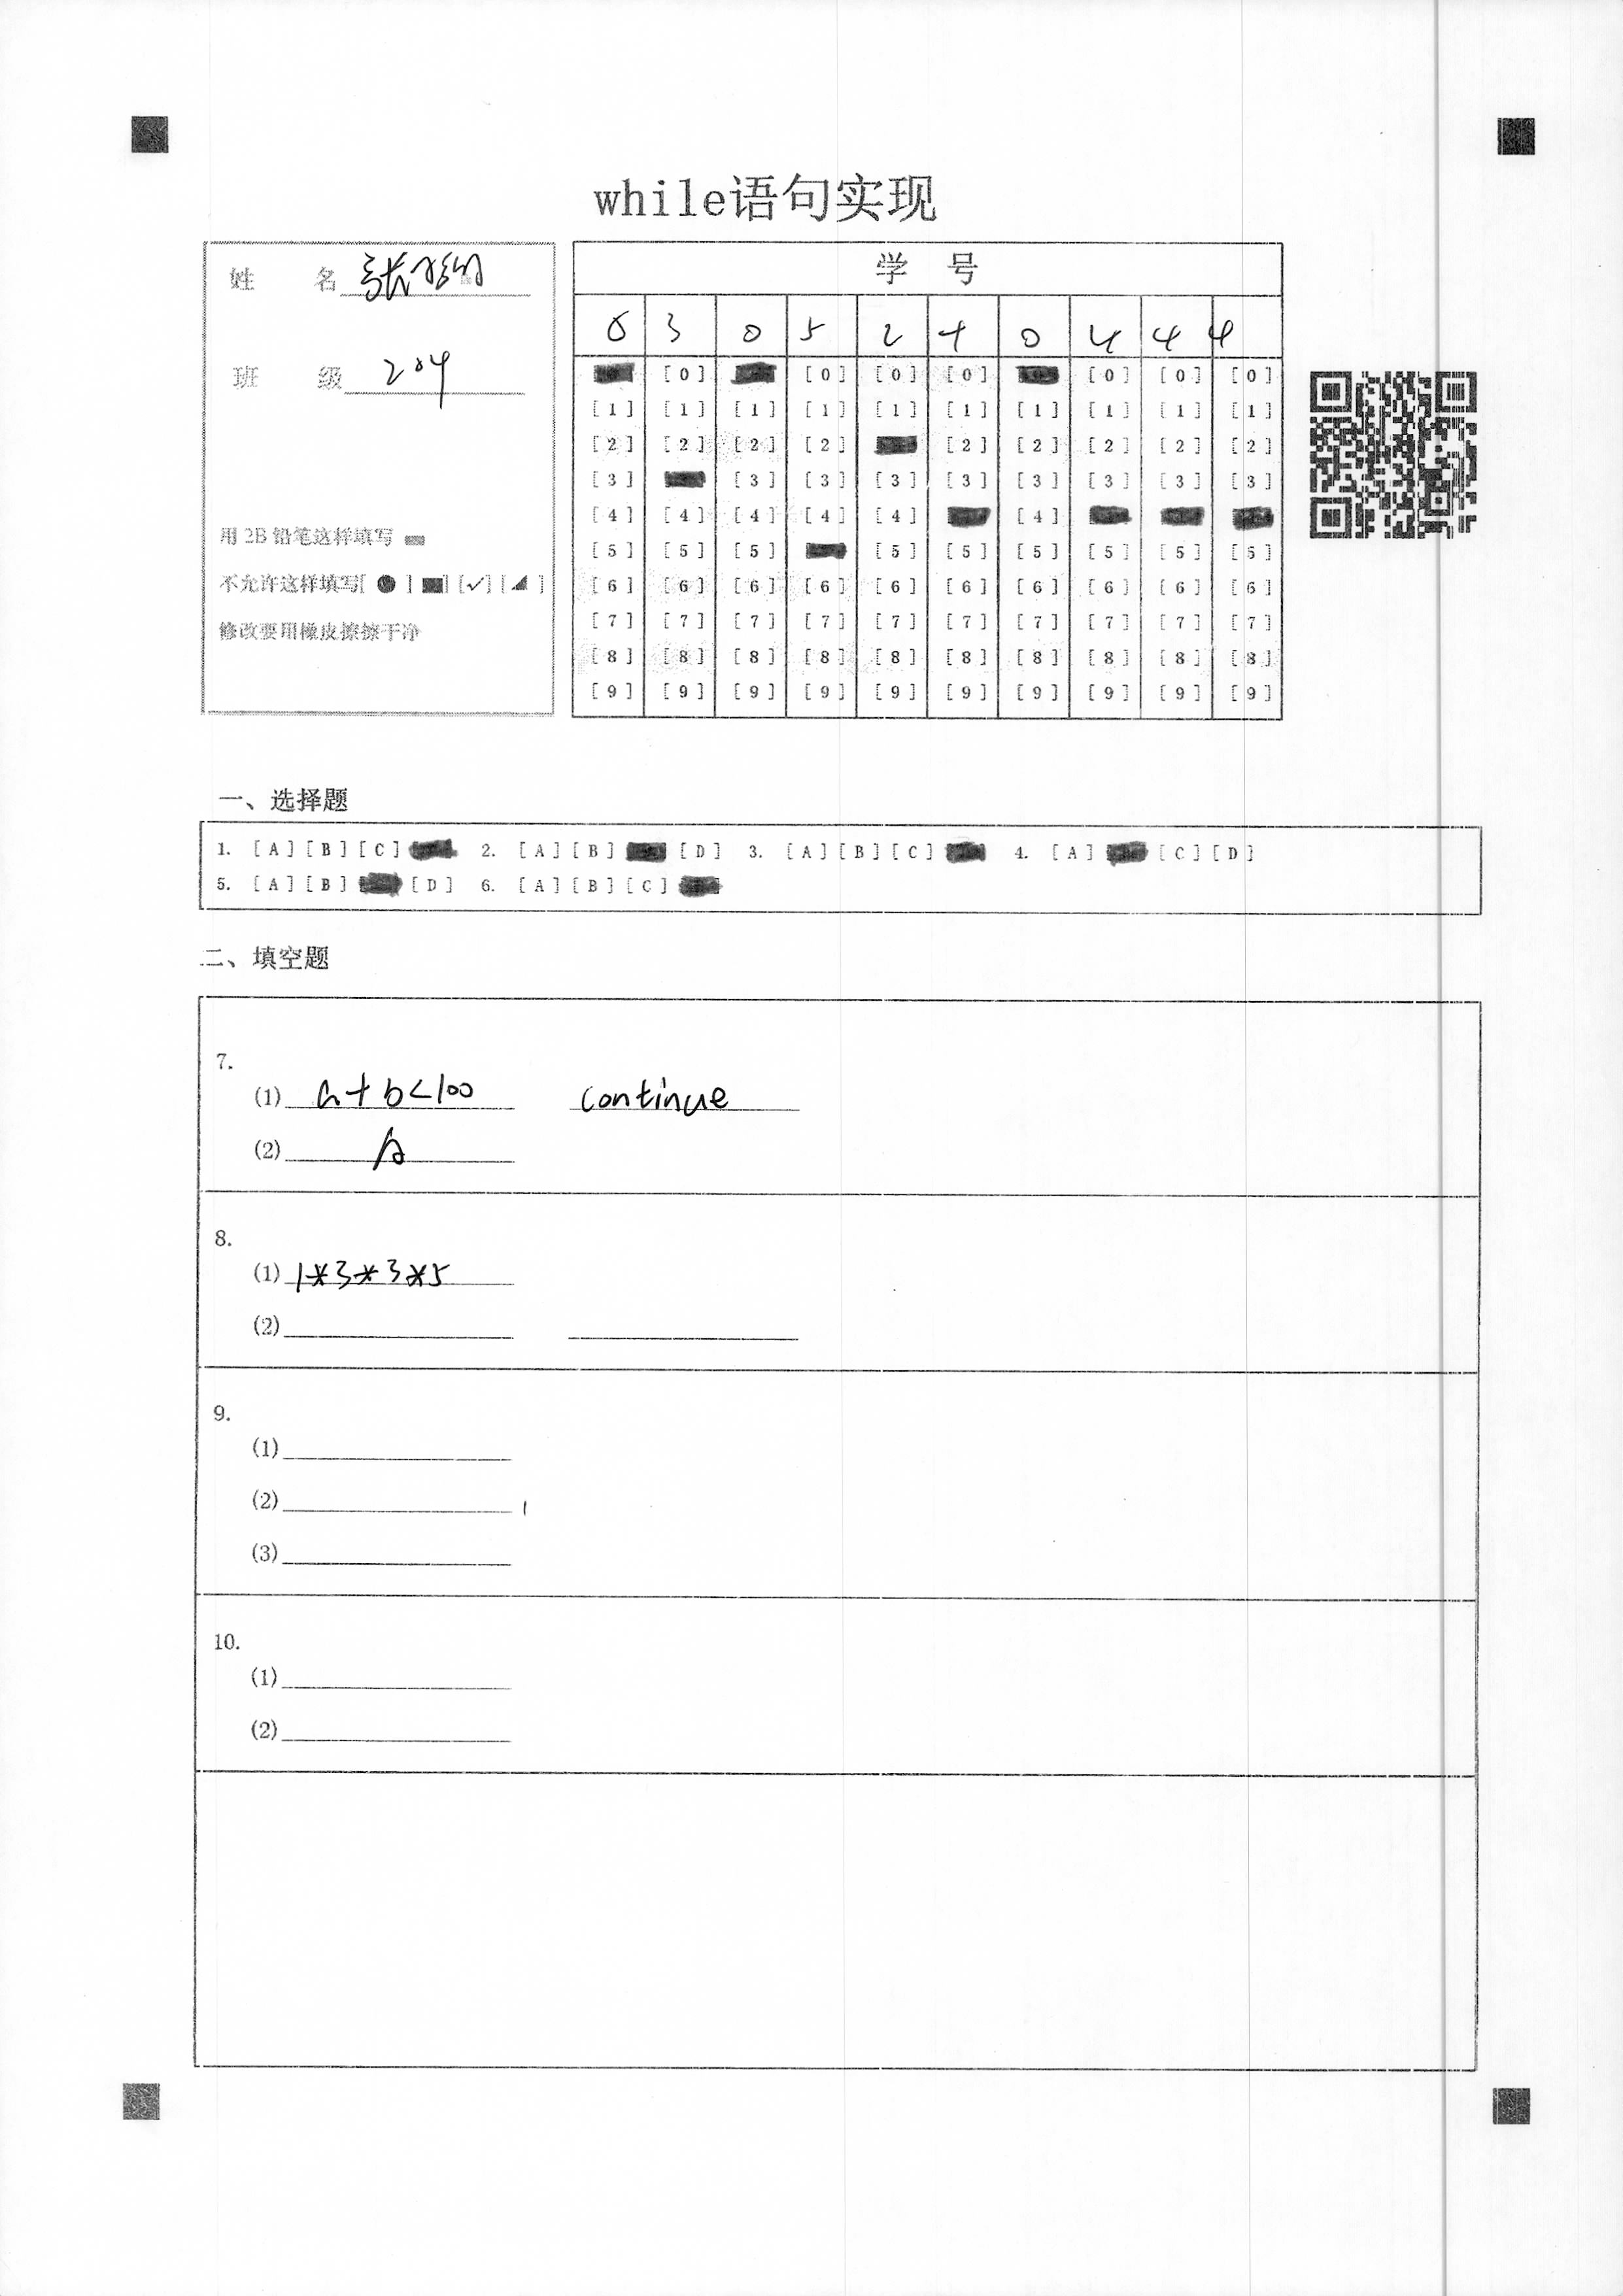 while语句实现
姓 名 张
班 级 204
用 2B 铅笔这样填写
不允许这样填写[ ● ] [■] [✓] [◢ ]
修改要用橡皮擦擦干净
学 号
0 3 0 5 2 4 0 4 4 4
[0] [0] [0] [0] [0] [0] [0]
[1] [1] [1] [1] [1] [1] [1] [1] [1] [1]
[2] [2] [2] [2] [2] [2] [2] [2] [2]
[3] [3] [3] [3] [3] [3] [3] [3] [3]
[4] [4] [4] [4] [4] [4]
[5] [5] [5] [5] [5] [5] [5] [5] [5]
[6] [6] [6] [6] [6] [6] [6] [6] [6] [6]
[7] [7] [7] [7] [7] [7] [7] [7] [7] [7]
[8] [8] [8] [8] [8] [8] [8] [8] [8] [8]
[9] [9] [9] [9] [9] [9] [9] [9] [9] [9]
一、选择题
1. [A] [B] [C] 2. [A] [B] [D] 3. [A] [B] [C] 4. [A] [C] [D]
5. [A] [B] [D] 6. [A] [B] [C]
二、填空题
7.
(1) a+b<100 continue
(2)
8.
(1) 1*3*3*5
(2)
9.
(1)
(2)
(3)
10.
(1)
(2)